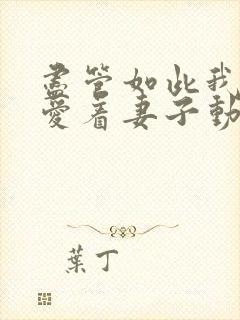 盡管如此我
愛着妻子動
葉丁